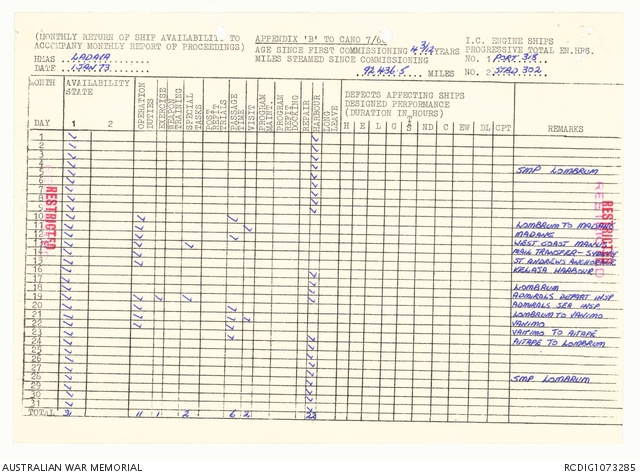 (MONTHLY RETURN OF SHIP AVAILABILITY TO
ACCOMPANY MONTHLY REPORT OF PROCEEDINGS)
HMAS LADAVA
DATE 1 JAN 73
APPENDIX 'B' TO CANO 7/68
AGE SINCE FIRST COMMISSIONING 4 3/12 YEARS
MILES STEAMED SINCE COMMISSIONING
92,436.5 MILES
I.C. ENGINE SHIPS
PROGRESSIVE TOTAL EN.HPS.
NO. 1 PORT 318
NO. 2 STBD 302
MONTH
DAY
AVAILABILITY
STATE
1 2
OPERATION
DUTIES
EXERCISE
TRAINING
SPECIAL
TASKS
POST
REFIT
TRIALS
PASSAGE
TIME
VISIT
PROGRAM
MAINT.
PROGRAM
REFIT
DOCKING
REPAIR
HARBOUR
LONG
LEAVE
DEFECTS AFFECTING SHIPS
DESIGNED PERFORMANCE
(DURATION IN HOURS)
H E L G S ND C EW DL CPT
REMARKS
1
2
3
4
5 SMP LOMBRUM
6
7
8
9
10
11 LOMBRUM TO MADANG
12 MADANG
13 WEST COAST MANUS
14 MAIL TRANSFER - SYDNEY
15 ST ANDREWS ANCHORAGE
16 KELAIA HARBOUR
17
18 LOMBRUM
19 ADMIRALS DEPART INSP
20 ADMIRALS SEA INSP
21 LOMBRUM TO VANIMO
22 VANIMO
23 VANIMO TO AITAPE
24 AITAPE TO LOMBRUM
25
26
27
28 SMP LOMBRUM
29
30
31
TOTAL 31 11 1 2 6 2 22
RESTRICTED
RESTRICTED
AUSTRALIAN WAR MEMORIAL
RCDIG1073285